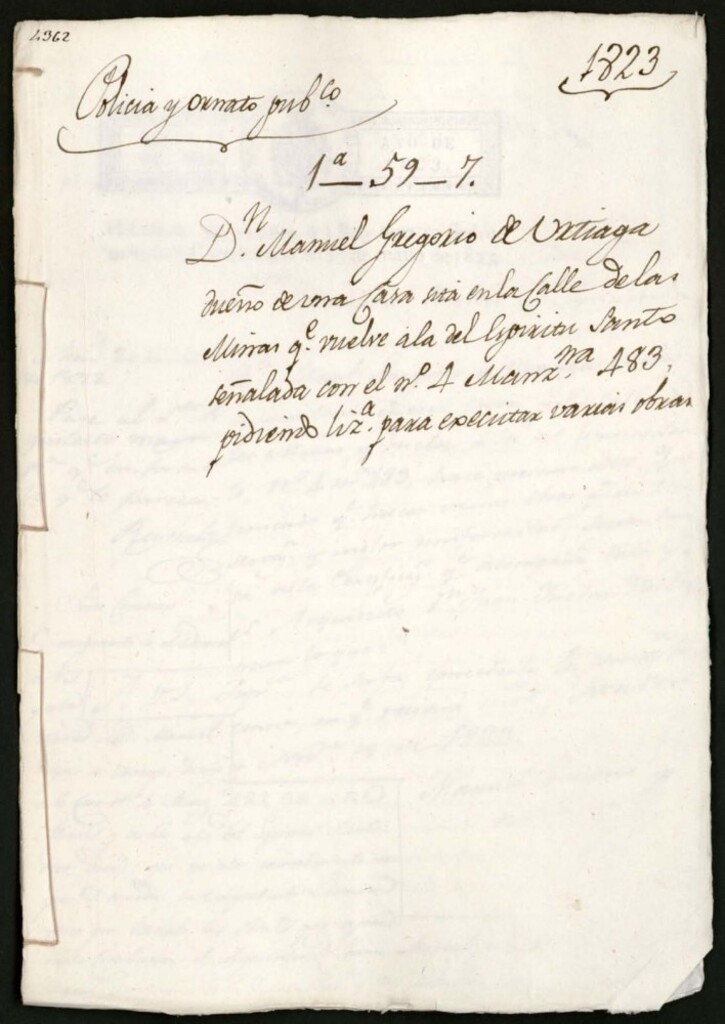 4362
1823
Policia y Ornato pub.co
1a — 59 — 7.
Dn. Manuel Gregorio de Urtiaga
dueño de una Casa sita en la Calle de las
Minas q.e vuelve á la del Espiritu Santo
señalada con el no. 4 Manz.na 483,
pidiendo liz.a para executar varias obras